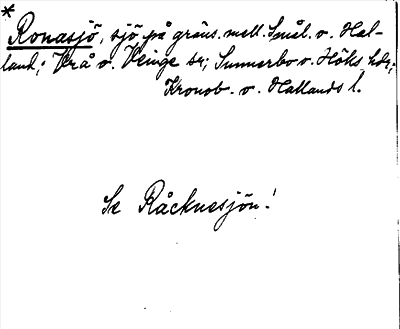 *
Ronasjö, sjö på gräns. mell. Smål. o. Hal-
land; Vrå o. Veinge sr; Sunnerbo o. Höks hdr;
Kronob. o. Hallands l.
Se Råcknesjön!